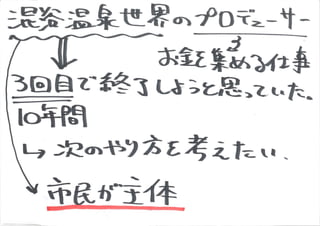 混浴温泉世界のプロデューサー
お金を集める仕事
3回目で終了しようと思っていた。
10年間
↳ 次のやり方を考えたい、
市民が主体